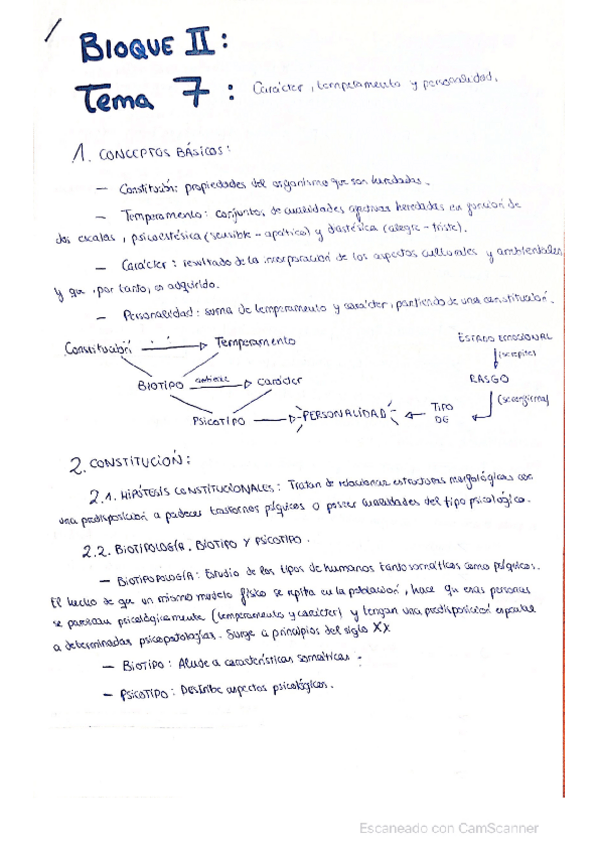 1
BLOQUE II:
Tema 7: Carácter, temperamento y personalidad.
1. CONCEPTOS BÁSICOS:
— Constitución: propiedades del organismo que son heredadas.
— Temperamento: conjuntos de cualidades afectivas heredadas en función de
dos escalas, psicoestésica (sensible - apático) y diastésica (alegre - triste).
— Carácter: resultado de la incorporación de los aspectos culturales y ambientales
y que, por tanto, es adquirido.
— Personalidad: suma de temperamento y carácter, partiendo de una constitución.
Constitución Temperamento
ESTADO EMOCIONAL
(se repite)
BIOTIPO ambiente carácter
RASGO
PSICOTIPO PERSONALIDAD TIPO
DE
2. CONSTITUCIÓN:
2.1. HIPÓTESIS CONSTITUCIONALES: Tratan de relacionar estructuras morfológicas con
una predisposición a padecer trastornos psíquicos o poseer cualidades del tipo psicológico.
2.2. BIOTIPOLOGÍA. BIOTIPO Y PSICOTIPO.
— BIOTIPOPOLOGÍA: Estudio de los tipos de humanos tanto somáticos como psíquicos.
El hecho de que un mismo modelo físico se repita en la población, hace que esas personas
se parezcan psicológicamente (temperamento y carácter) y tengan una predisposición especial
a determinadas psicopatologías. Surge a principios del siglo XX
— BIOTIPO: Alude a características somáticas.
— PSICOTIPO: Describe aspectos psicológicos.
Escaneado con CamScanner